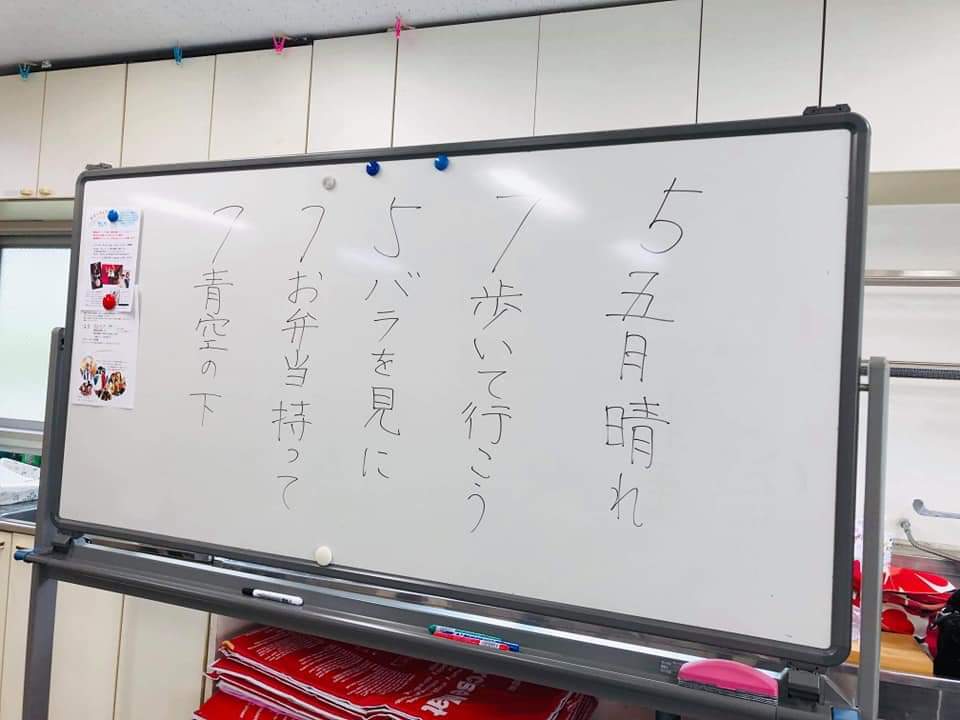 5 五月晴れ
7 歩いて行こう
5 バラを見に
7 お弁当持って
7 青空の下